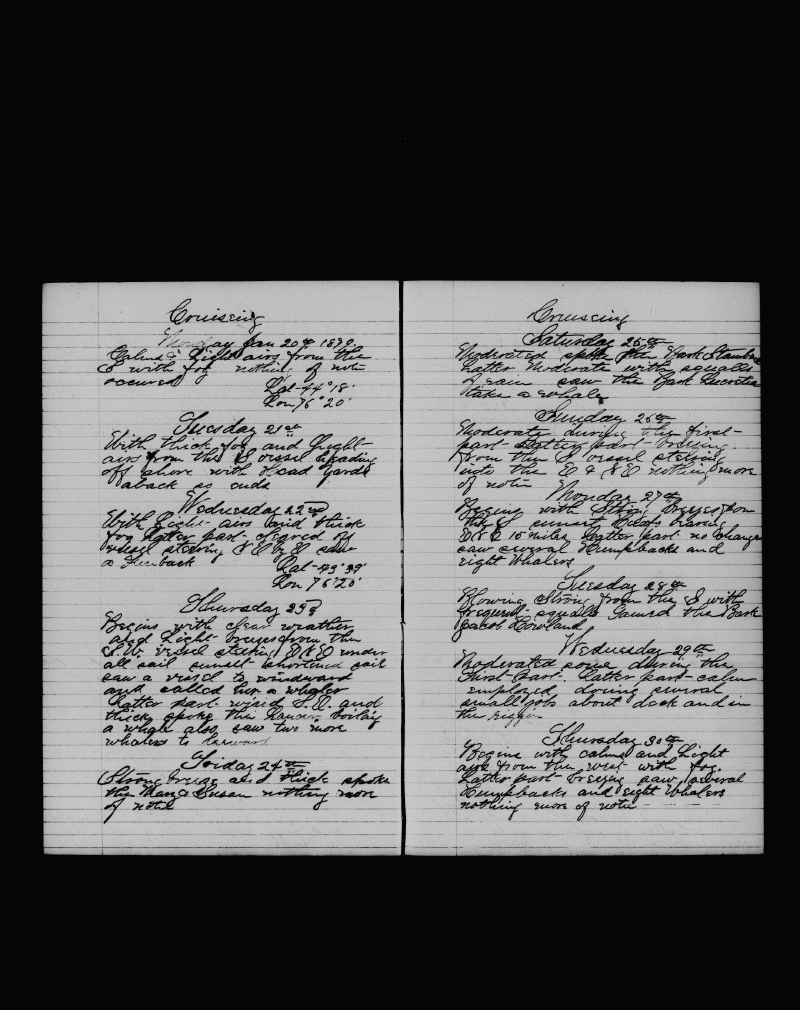 Cruising
Monday Jan 20th 1879.
Calms & Light airs from the
E with fog nothing of note
occured Lat-44°18'
Lon 76°20'
Tuesday 21st
With thick fog and Light-
airs from the S vessel heading
off shore with Head Yards
aback so ends
Wednesday 22nd
With Light- airs and thick
fog Latter part- cleared off
vessel steering N E by E saw
a Finback Lat-43°39'
Lon 76°20'
Thursday 23d
Begins with clear weather
and Light breezes from the
S.W. vessel steering E N E under
all sail sunset shortened sail
saw a vessel to windward
and called her a whaler
Latter part- wind S.E. and
thick spoke the boiling
a whale also saw two more
whalers to leeward
Friday 24th
Strong breeze and thick spoke
the Mary & Susan nothing more
of note
Cruising
Saturday 25th
Moderated spoke the Bark
Latter Moderate with squalls
of rain saw the Bark
take a whale
Sunday 26th
Moderate during the first-
part- Latter part- breezing
from the S vessel steering
into the E & N E nothing more
of note
Monday 27th
Begins with Strong Breezes from
the S sunset bearing
E N E 15 miles Latter part- no change
saw several Humpbacks and
right Whalers
Tuesday 28th
Blowing Strong from the S with
frequent- squalls Gamed the Bark
Jacob Howland
Wednesday 29th
Moderated some during the
First- Part-. Latter part- calm
employed doing several
small jobs about deck and in
the riggin
Thursday 30th
Begins with calms and Light
airs from the west with fog.
Latter part breezing saw several
Humpbacks and right Whalers
nothing more of note